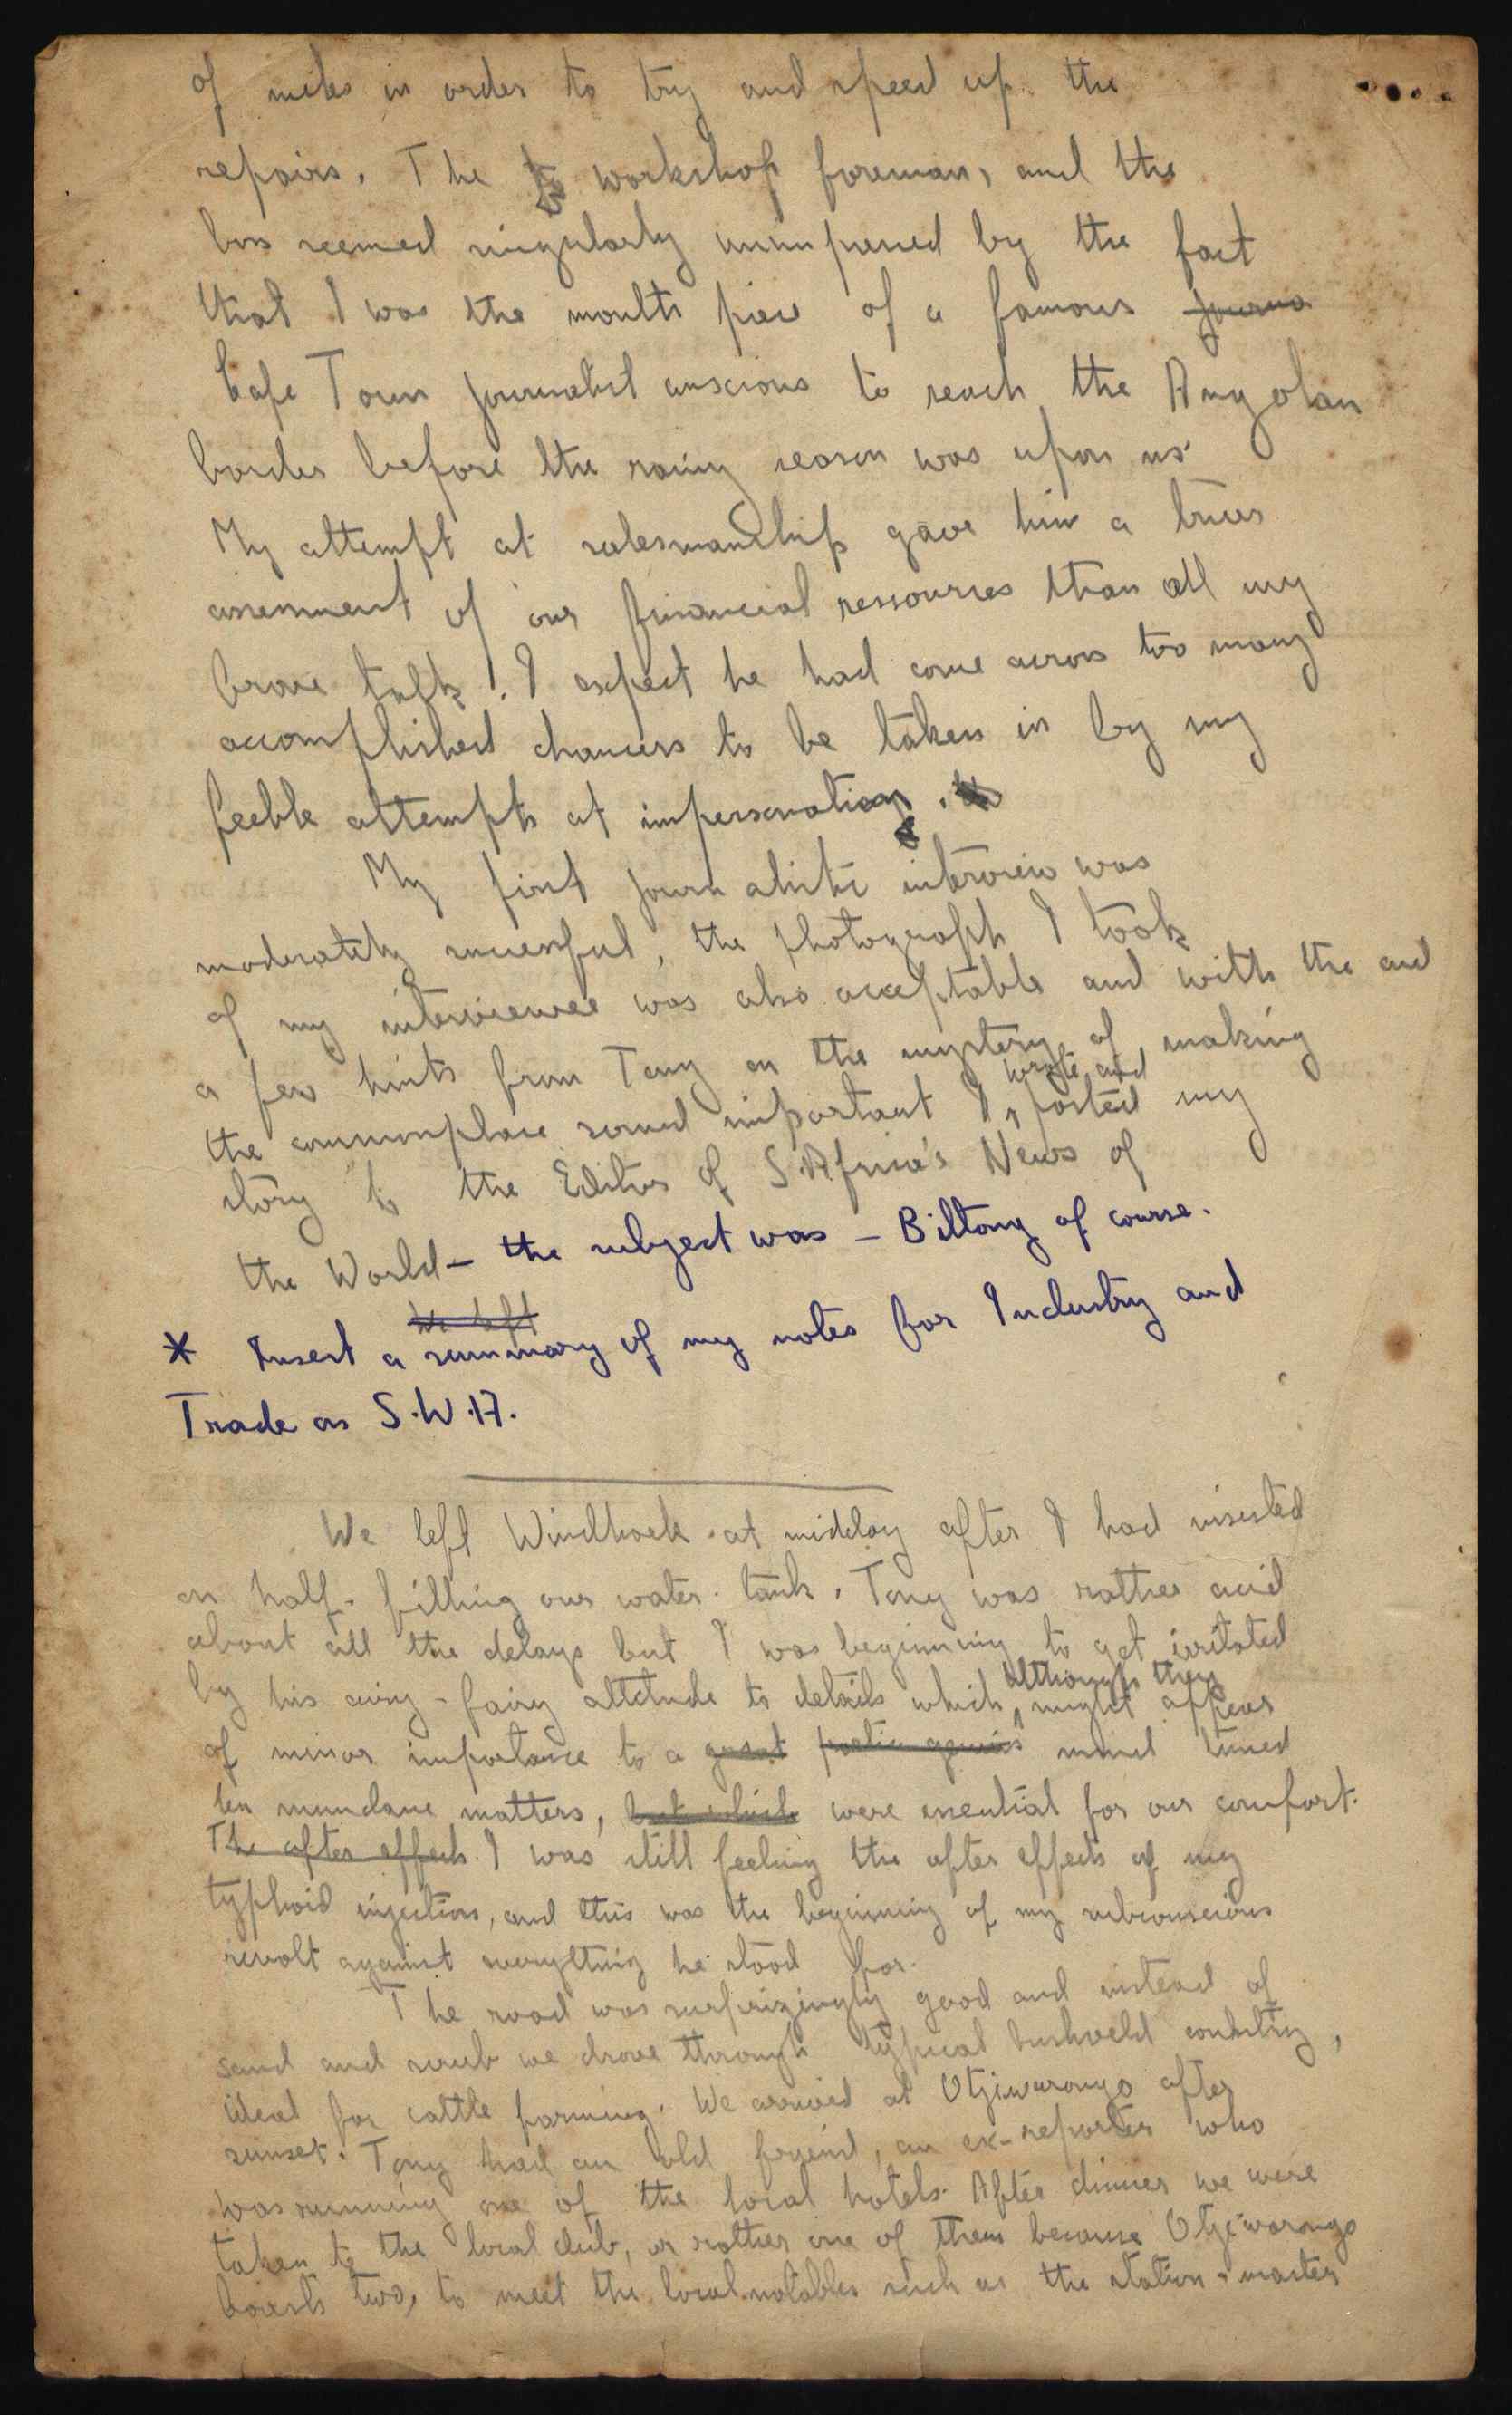 of miles in order to try and speed up the
repairs. The workshop foreman, and the
boss seemed singularly unimpressed by the fact
that I was the mouth piece of a famous journa
Cape Town journalist anscious to reach the Angolan
border before the rainy season was upon us.
My attempt at salesmanship gave him a truer
assessment of our financial ressources than all my
brave talk. I expect he had come across too many
accomplished chancers to be taken in by my
feeble attempts at impersonation.
My first journalistic interview was
moderately successful, the photograph I took
of my interviewee was also acceptable and with the aid
a few hints from Tony on the mystery of making
the commonplace sound important I wrote and posted my
story to the Editor of S.Africa's News of
the World – the subject was – Biltong of course.
We left
* Insert a summary of my notes for Industry and
Trade on S.W.A.
We left Windhoek at midday after I had insisted
on half-filling our water-tank. Tony was rather acid
about all the delays but I was beginning to get irritated
by his airy-fairy attitude to details which although they might appear
of minor importance to a great poetic genius mind tuned
mundane matters, but which were essential for our comfort.
The after effects I was still feeling the after effects of my
typhoid injection, and this was the beginning of my subconscious
revolt against everything he stood for.
The road was surprizingly good and instead of
sand and scrub we drove through typical bushveld country,
ideal for cattle farming. We arrived at Otjiwarongo after
sunset. Tony had an old freind, an ex-reporter who
was running one of the local hotels. After dinner we were
taken to the local club, or rather one of them because Otjiwarongo
boasts two, to meet the local notables such as the station-master